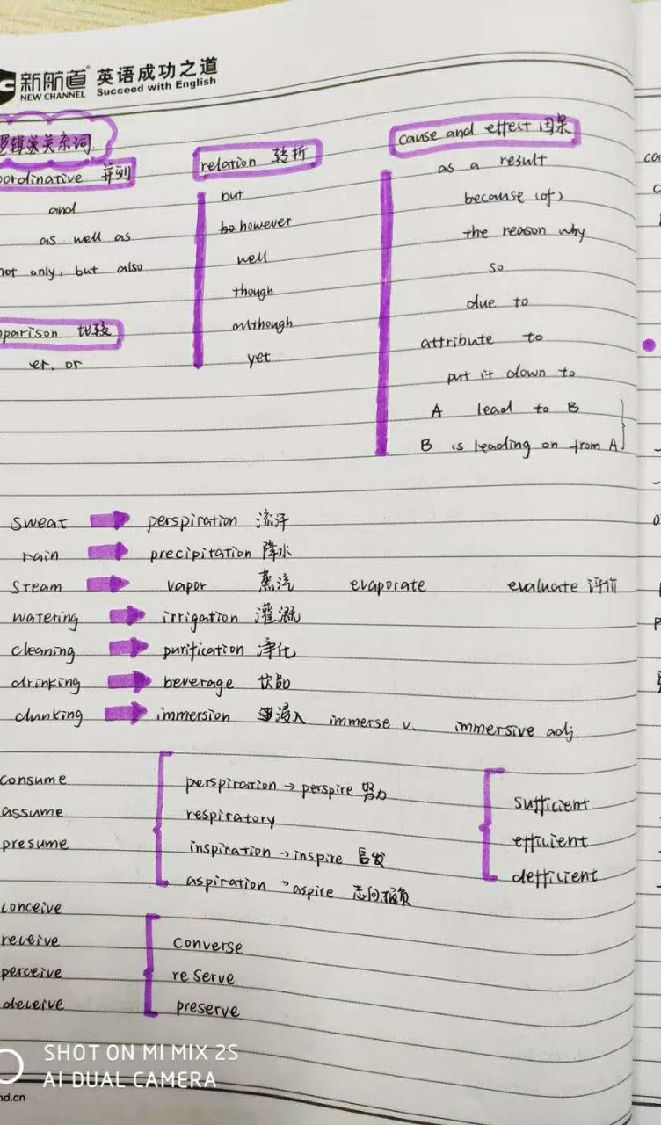 新航道 英语成功之道
NEW CHANNEL Succeed with English
逻辑关系词
oordinative 并列
and
as well as
not only, but also
parison 比较
er. or
relation 转折
but
however
well
though
although
yet
cause and effect 因果
as a result
because (of)
the reason why
so
due to
attribute to
put it down to
A lead to B
B is leading on from A
sweat perspiration 流汗
rain precipitation 降水
steam vapor 蒸汽 evaporate evaluate 评价
watering irrigation 灌溉
cleaning purification 净化
drinking beverage 饮
immersion 浸入 immerse v. immersive adj
consume
assume
presume
perspiration → perspire 努力
respiratory
inspiration → inspire 启发
aspiration → aspire 志向抱负
sufficient
efficient
defficient
conceive
receive
perceive
deceive
converse
reserve
preserve
SHOT ON MI MIX 2S
AI DUAL CAMERA
nd.cn